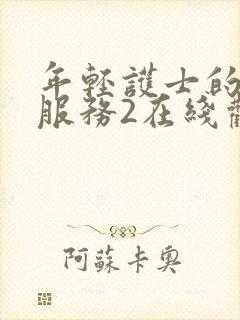 年輕護士的
服務2在綫
阿蘇卡奧